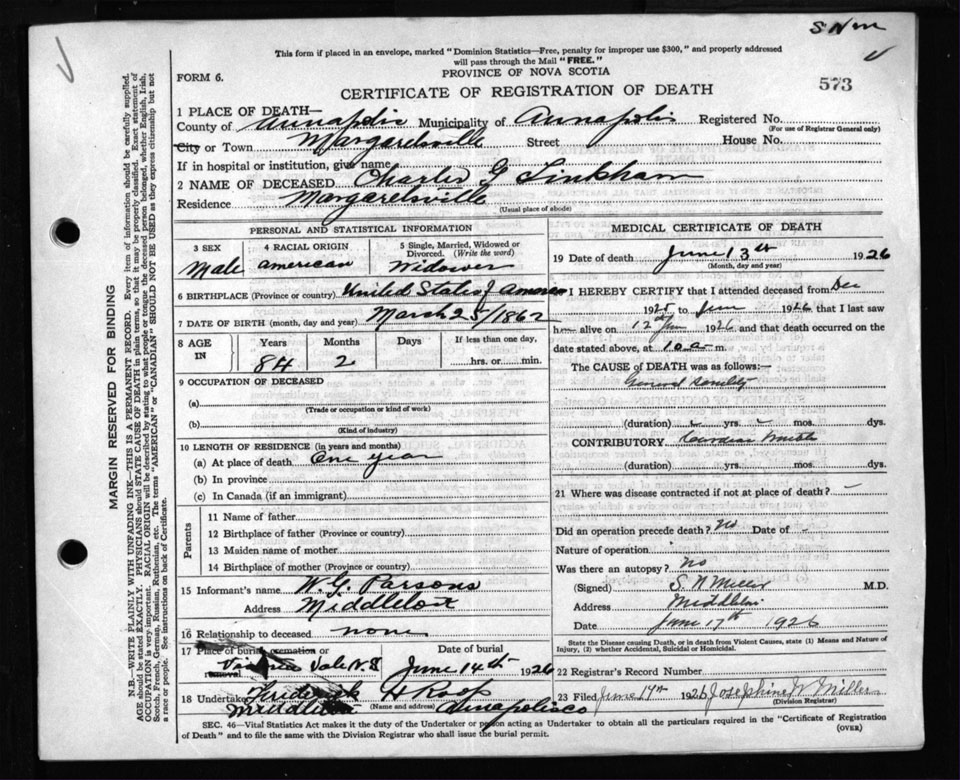 S N
573
This form if placed in an envelope, marked "Dominion Statistics—Free, penalty for improper use $300," and properly addressed
will pass through the Mail "FREE."
FORM 6.
PROVINCE OF NOVA SCOTIA
CERTIFICATE OF REGISTRATION OF DEATH
1 PLACE OF DEATH—
County of Annapolis Municipality of Annapolis Registered No.
(For use of Registrar General only)
City or Town Margaretsville Street House No.
If in hospital or institution, give name
2 NAME OF DECEASED Charles G Tinkham
Residence Margaretsville
(Usual place of abode)
PERSONAL AND STATISTICAL INFORMATION
3 SEX
Male
4 RACIAL ORIGIN
American
5 Single, Married, Widowed or
Divorced. (Write the word)
Widower
6 BIRTHPLACE (Province or country) United States of America
7 DATE OF BIRTH (month, day and year) March 25/1862
8 AGE IN
Years Months Days If less than one day,
84 2 hrs. or min.
9 OCCUPATION OF DECEASED
(a)
(Trade or occupation or kind of work)
(b)
(Kind of industry)
10 LENGTH OF RESIDENCE (in years and months)
(a) At place of death One year
(b) In province
(c) In Canada (if an immigrant)
Parents
11 Name of father
12 Birthplace of father (Province or country)
13 Maiden name of mother
14 Birthplace of mother (Province or country)
15 Informant's name W. G. Parsons
Address Middleton
16 Relationship to deceased none
17 Place of burial, cremation or Date of burial
removal Vale N.S June 14th 1926
18 Undertaker H Roop
(Name and address)
Middleton Annapolis Co
MEDICAL CERTIFICATE OF DEATH
19 Date of death June 13th 1926
(Month, day and year)
I HEREBY CERTIFY that I attended deceased from Dec
1925 to June 1926 that I last saw
h alive on 12 June 1926 and that death occurred on
date stated above, at 10 a m.
The CAUSE of DEATH was as follows:—
General Senility
(duration) yrs. mos. dys.
CONTRIBUTORY Cardiac
(duration) yrs. mos. dys.
21 Where was disease contracted if not at place of death? —
Did an operation precede death? no Date of -
Nature of operation
Was there an autopsy? no
(Signed) S. N Miller M.D.
Address Middleton
Date June 17th 1926
State the Disease causing Death, or in death from Violent Causes, state (1) Means and Nature of
Injury, (2) whether Accidental, Suicidal or Homicidal.
22 Registrar's Record Number
23 Filed June 19th 1926 Josephine Miller
(Division Registrar)
SEC. 46—Vital Statistics Act makes it the duty of the Undertaker or person acting as Undertaker to obtain all the particulars required in the "Certificate of Registration
of Death" and to file the same with the Division Registrar who shall issue the burial permit.
(OVER)
MARGIN RESERVED FOR BINDING
N.B.—WRITE PLAINLY WITH UNFADING INK—THIS IS A PERMANENT RECORD. Every item of information should be carefully supplied.
AGE should be stated EXACTLY. PHYSICIANS should STATE CAUSE OF DEATH in plain terms, so that it may be properly classified. Exact statement of
OCCUPATION is very important. RACIAL ORIGIN will be described by stating to what people or tongue the deceased person belonged, whether English, Irish,
Scotch, French, German, Russian, Ruthenian, etc. The terms "AMERICAN" or "CANADIAN" SHOULD NOT BE USED as they express citizenship but not
a race or people. See instructions on back of Certificate.